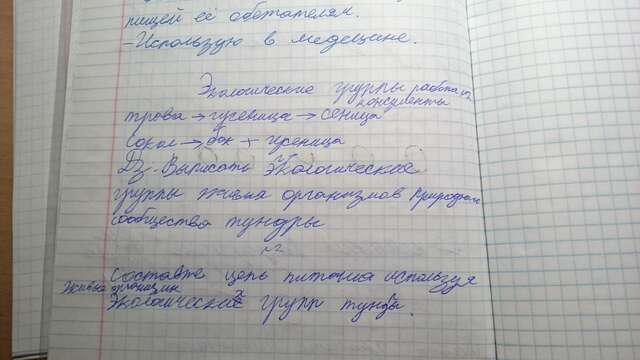 пищей её обитателям.
- Использую в медецине.
Экологические группы работа
консументы
трова → гусеница → сеница
Сокол → + гусеница
Дз. Выписать экологические
группы организмов природном
сообщества тундры
№2
составте цепь питания используя
Живые организмы
Экологические групп тундры.